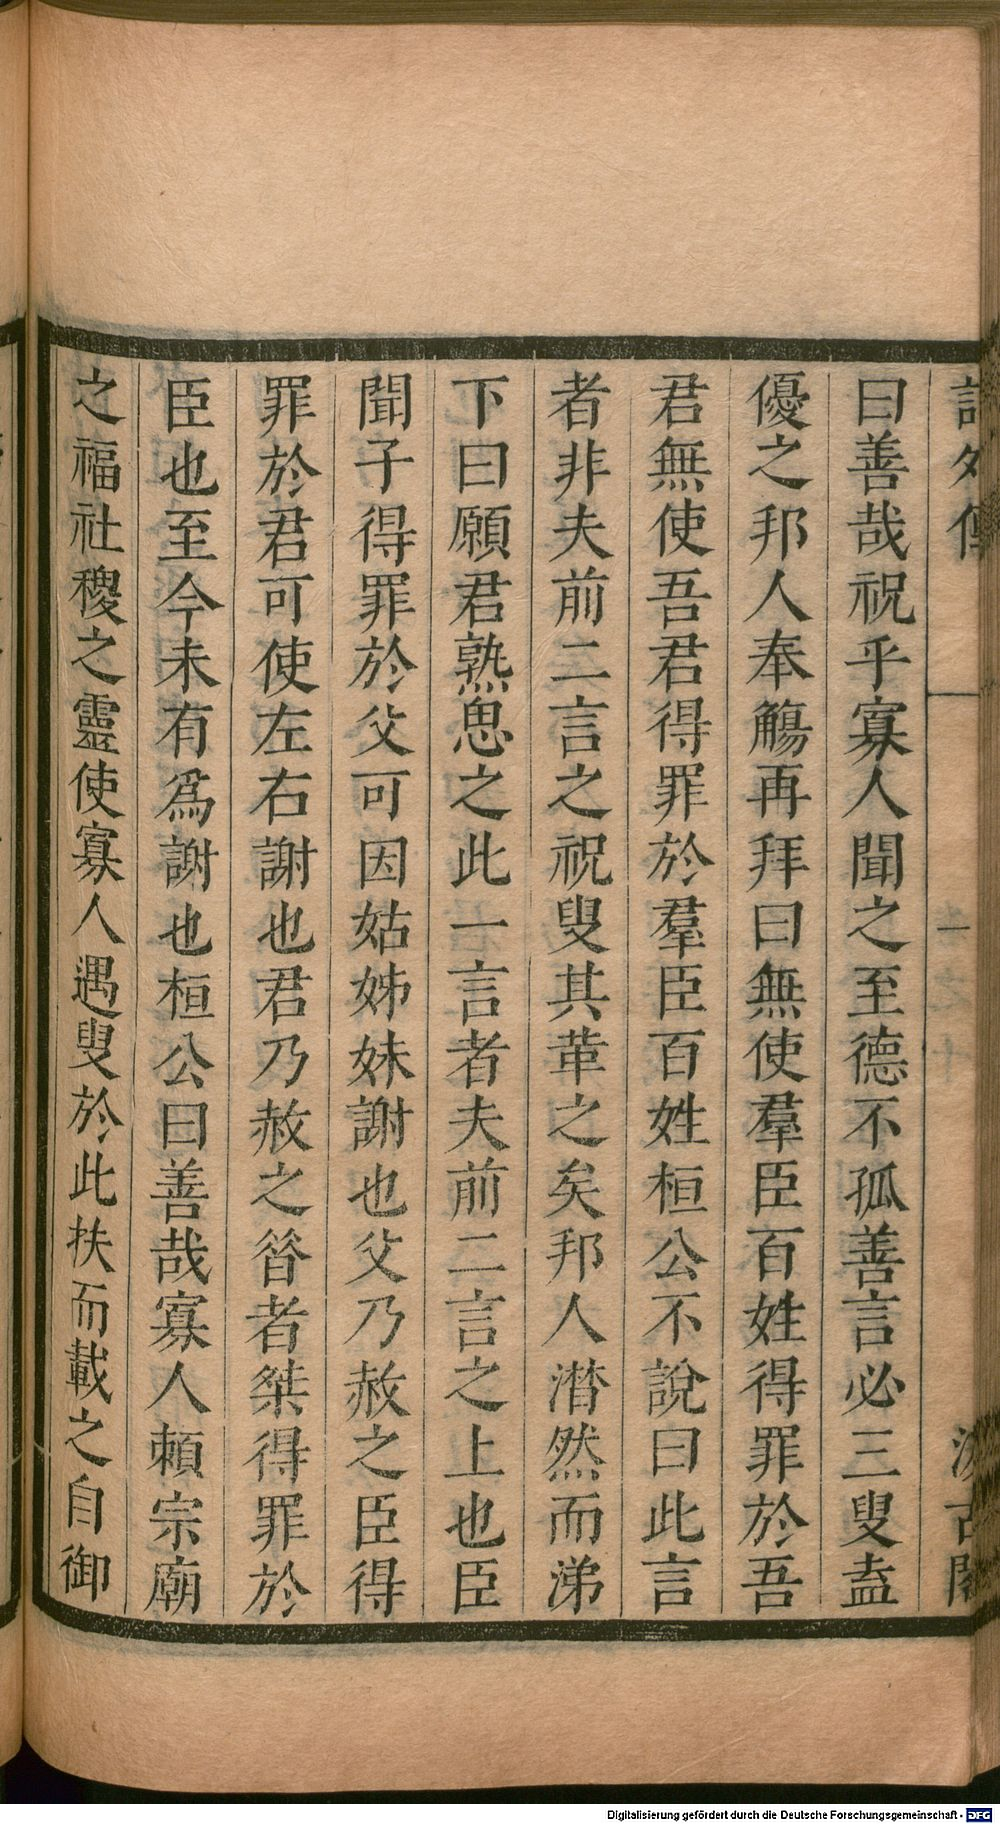 詩外傳
汲古閣
曰善哉祝乎寡人聞之至德不孤善言必三叟盍
優之邦人奉觴再拜曰無使羣臣百姓得罪於吾
君無使吾君得罪於羣臣百姓桓公不說曰此言
者非夫前二言之祝叟其革之矣邦人潸然而涕
下曰願君熟思之此一言者夫前二言之上也臣
聞子得罪於父可因姑姊妹謝也父乃赦之臣得
罪於君可使左右謝也君乃赦之昝者桀得罪於
臣也至今未有爲謝也桓公曰善哉寡人頼宗廟
之福社稷之靈使寡人遇叟於此扶而載之自御
Digitalisierung gefördert durch die Deutsche Forschungsgemeinschaft - DFG